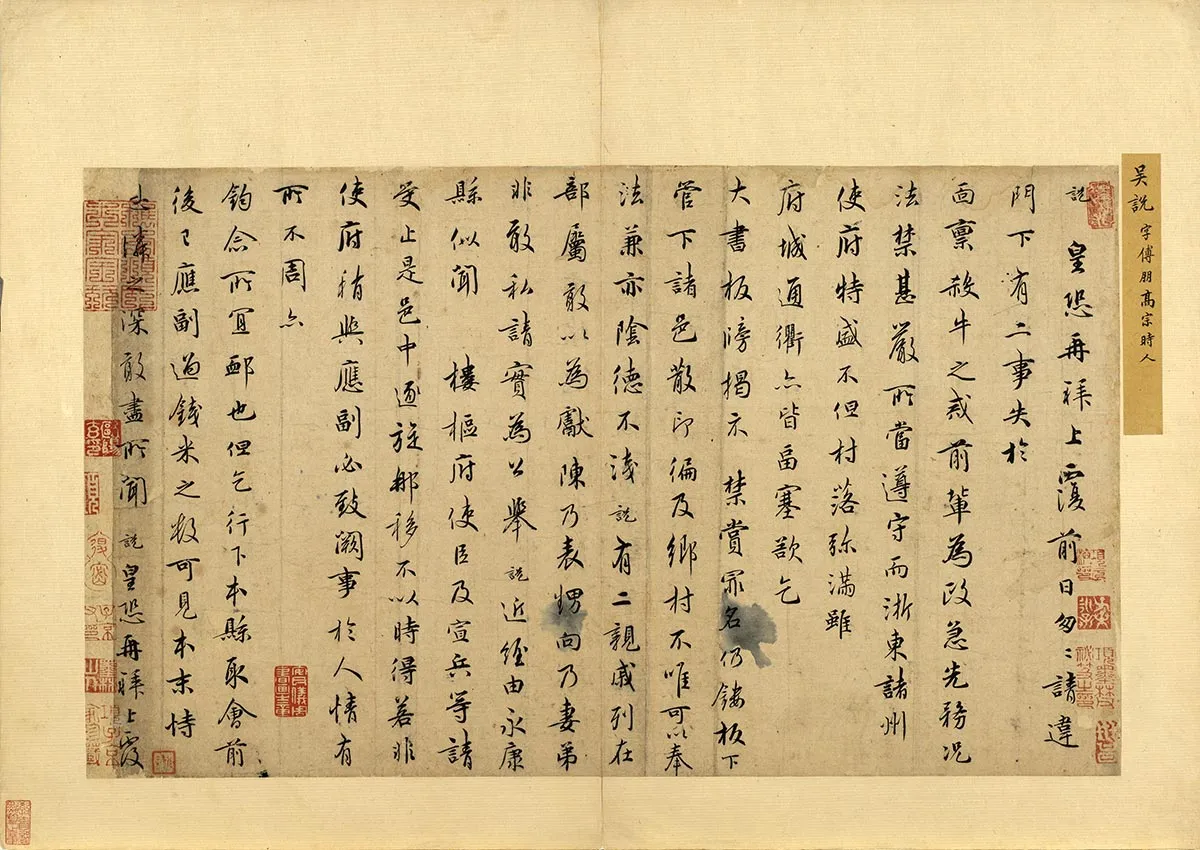 吳說字傅朋高宗時人
說皇恐再拜上覆前日匆〻請違
門下有二事失於
面稟殺牛之戒前輩為政急先務況
法禁甚嚴所當遵守而浙東諸州
使府特盛不但村落弥滿雖
府城通衢亦皆畐塞欲乞
大書板牓揭示禁賞罪名仍鏤板下
管下諸邑散印徧及鄉村不唯可以奉
法兼亦陰德不淺說有二親戚列在
部屬敢以為獻陳乃表甥向乃妻弟
非敢私請實為公舉說近經由永康
縣似聞樓樞府使臣及宣兵等請
受止是邑中逐旋那移不以時得若非
使府稍與應副必致闕事於人情有
所不周亦
鈞念所宜卹也但乞行下本縣取會前
後已應副過錢米之數可見本末恃
憐之深敢盡所聞說皇恐再拜上覆